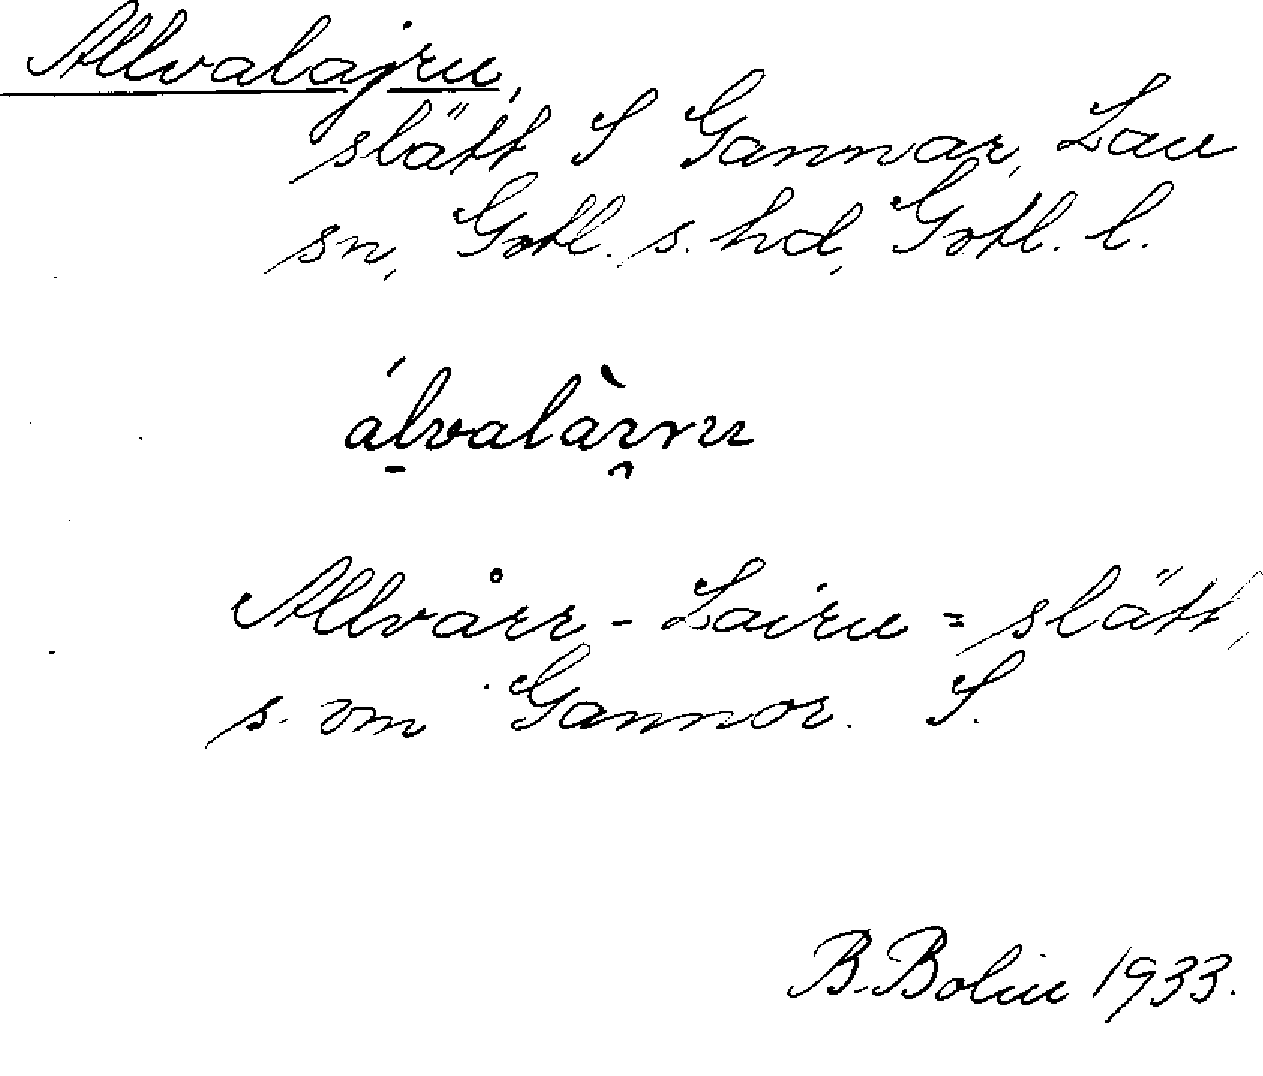 Allvalajru,
slätt S Gannar, Lau
sn, Gotl. s. hd, Gotl. l.
álvalàiru
Allvårr - Lairu = slätt,
s. om Gannor. S.
B. Bolin 1933.